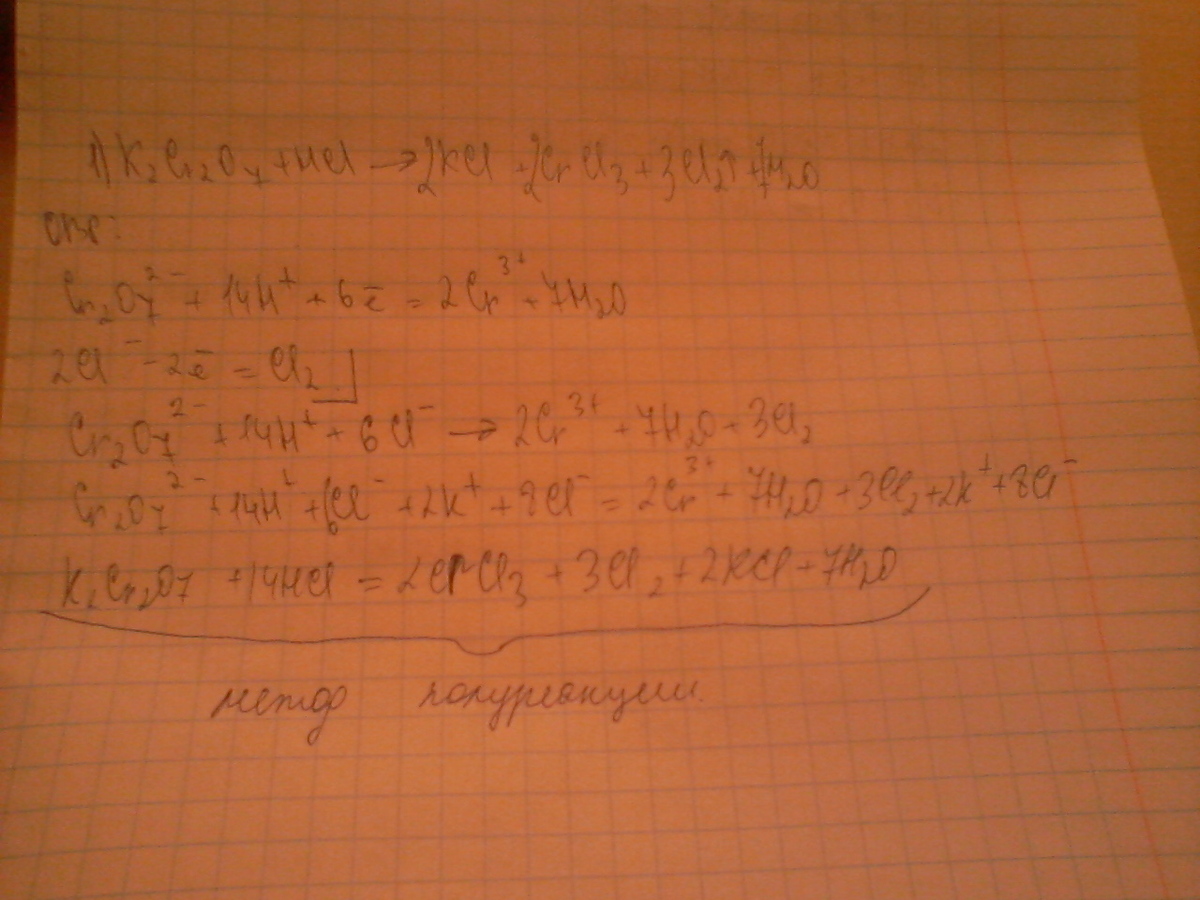 1) K₂Cr₂O₇ + HCl → 2KCl + 2CrCl₃ + 3Cl₂↑ + 7H₂O
ОВР:
Cr₂O₇²⁻ + 14H⁺ + 6ē = 2Cr³⁺ + 7H₂O
2Cl⁻ - 2ē = Cl₂
Cr₂O₇²⁻ + 14H⁺ + 6Cl⁻ → 2Cr³⁺ + 7H₂O + 3Cl₂
Cr₂O₇²⁻ + 14H⁺ + 6Cl⁻ + 2K⁺ + 8Cl⁻ = 2Cr³⁺ + 7H₂O + 3Cl₂ + 2K⁺ + 8Cl⁻
K₂Cr₂O₇ + 14HCl = 2CrCl₃ + 3Cl₂ + 2KCl + 7H₂O
метод полуреакции.